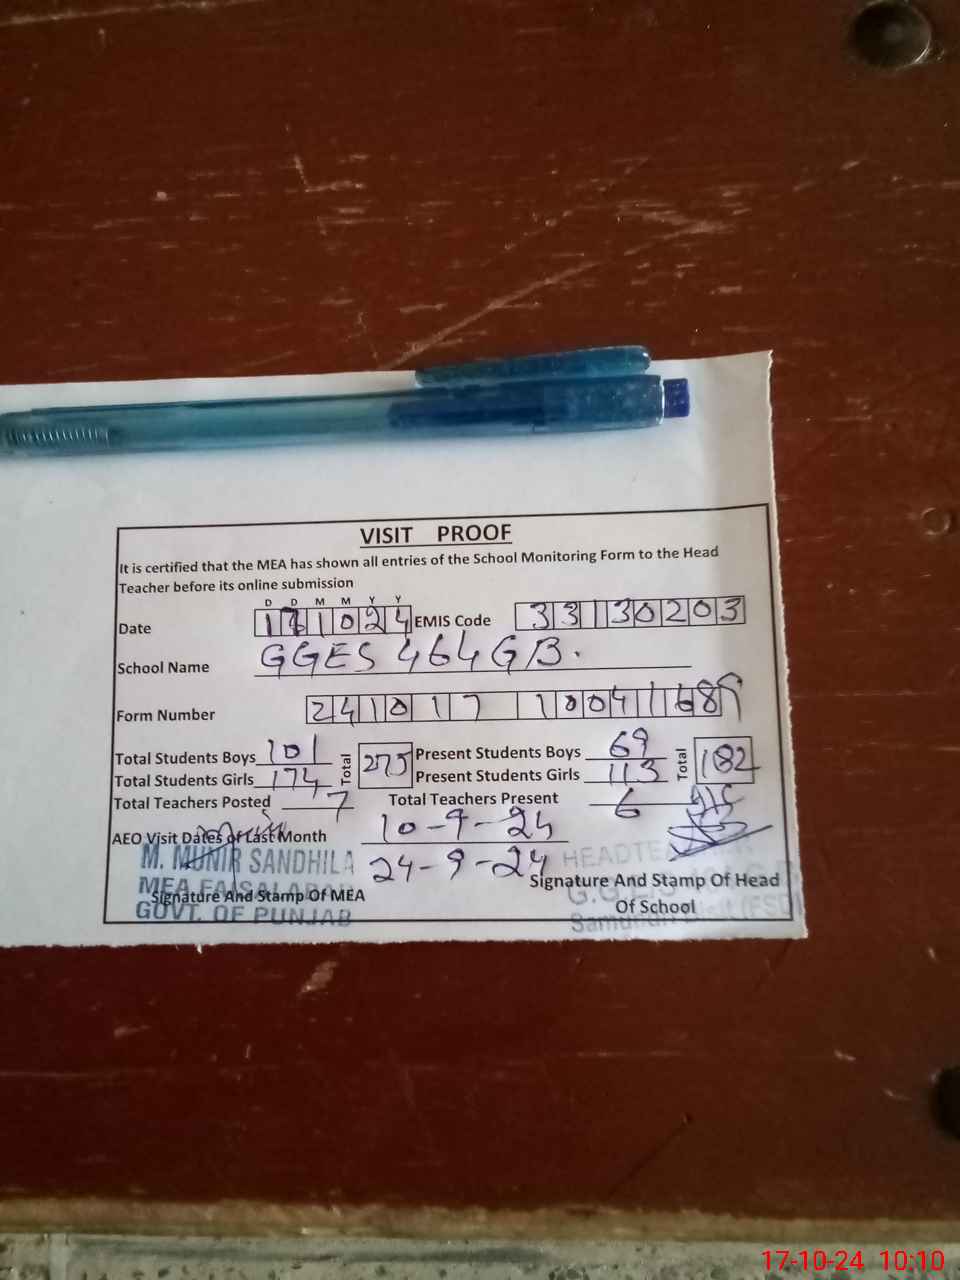 VISIT PROOF
It is certified that the MEA has shown all entries of the School Monitoring Form to the Head
Teacher before its online submission
D D M M Y Y
Date 171024 EMIS Code 33130203
School Name GGES 464 GB.
Form Number 241017 1004168
Total Students Boys 101 Total 275 Present Students Boys 69 Total 182
Total Students Girls 174 Present Students Girls 113
Total Teachers Posted 7 Total Teachers Present 6
AEO Visit Dates of Last Month 10-9-24
24-9-24
M. MUNIR SANDHILA
MEA FAISALABAD
GOVT. OF PUNJAB
Signature And Stamp Of MEA
Signature And Stamp Of Head
Of School
17-10-24 10:10